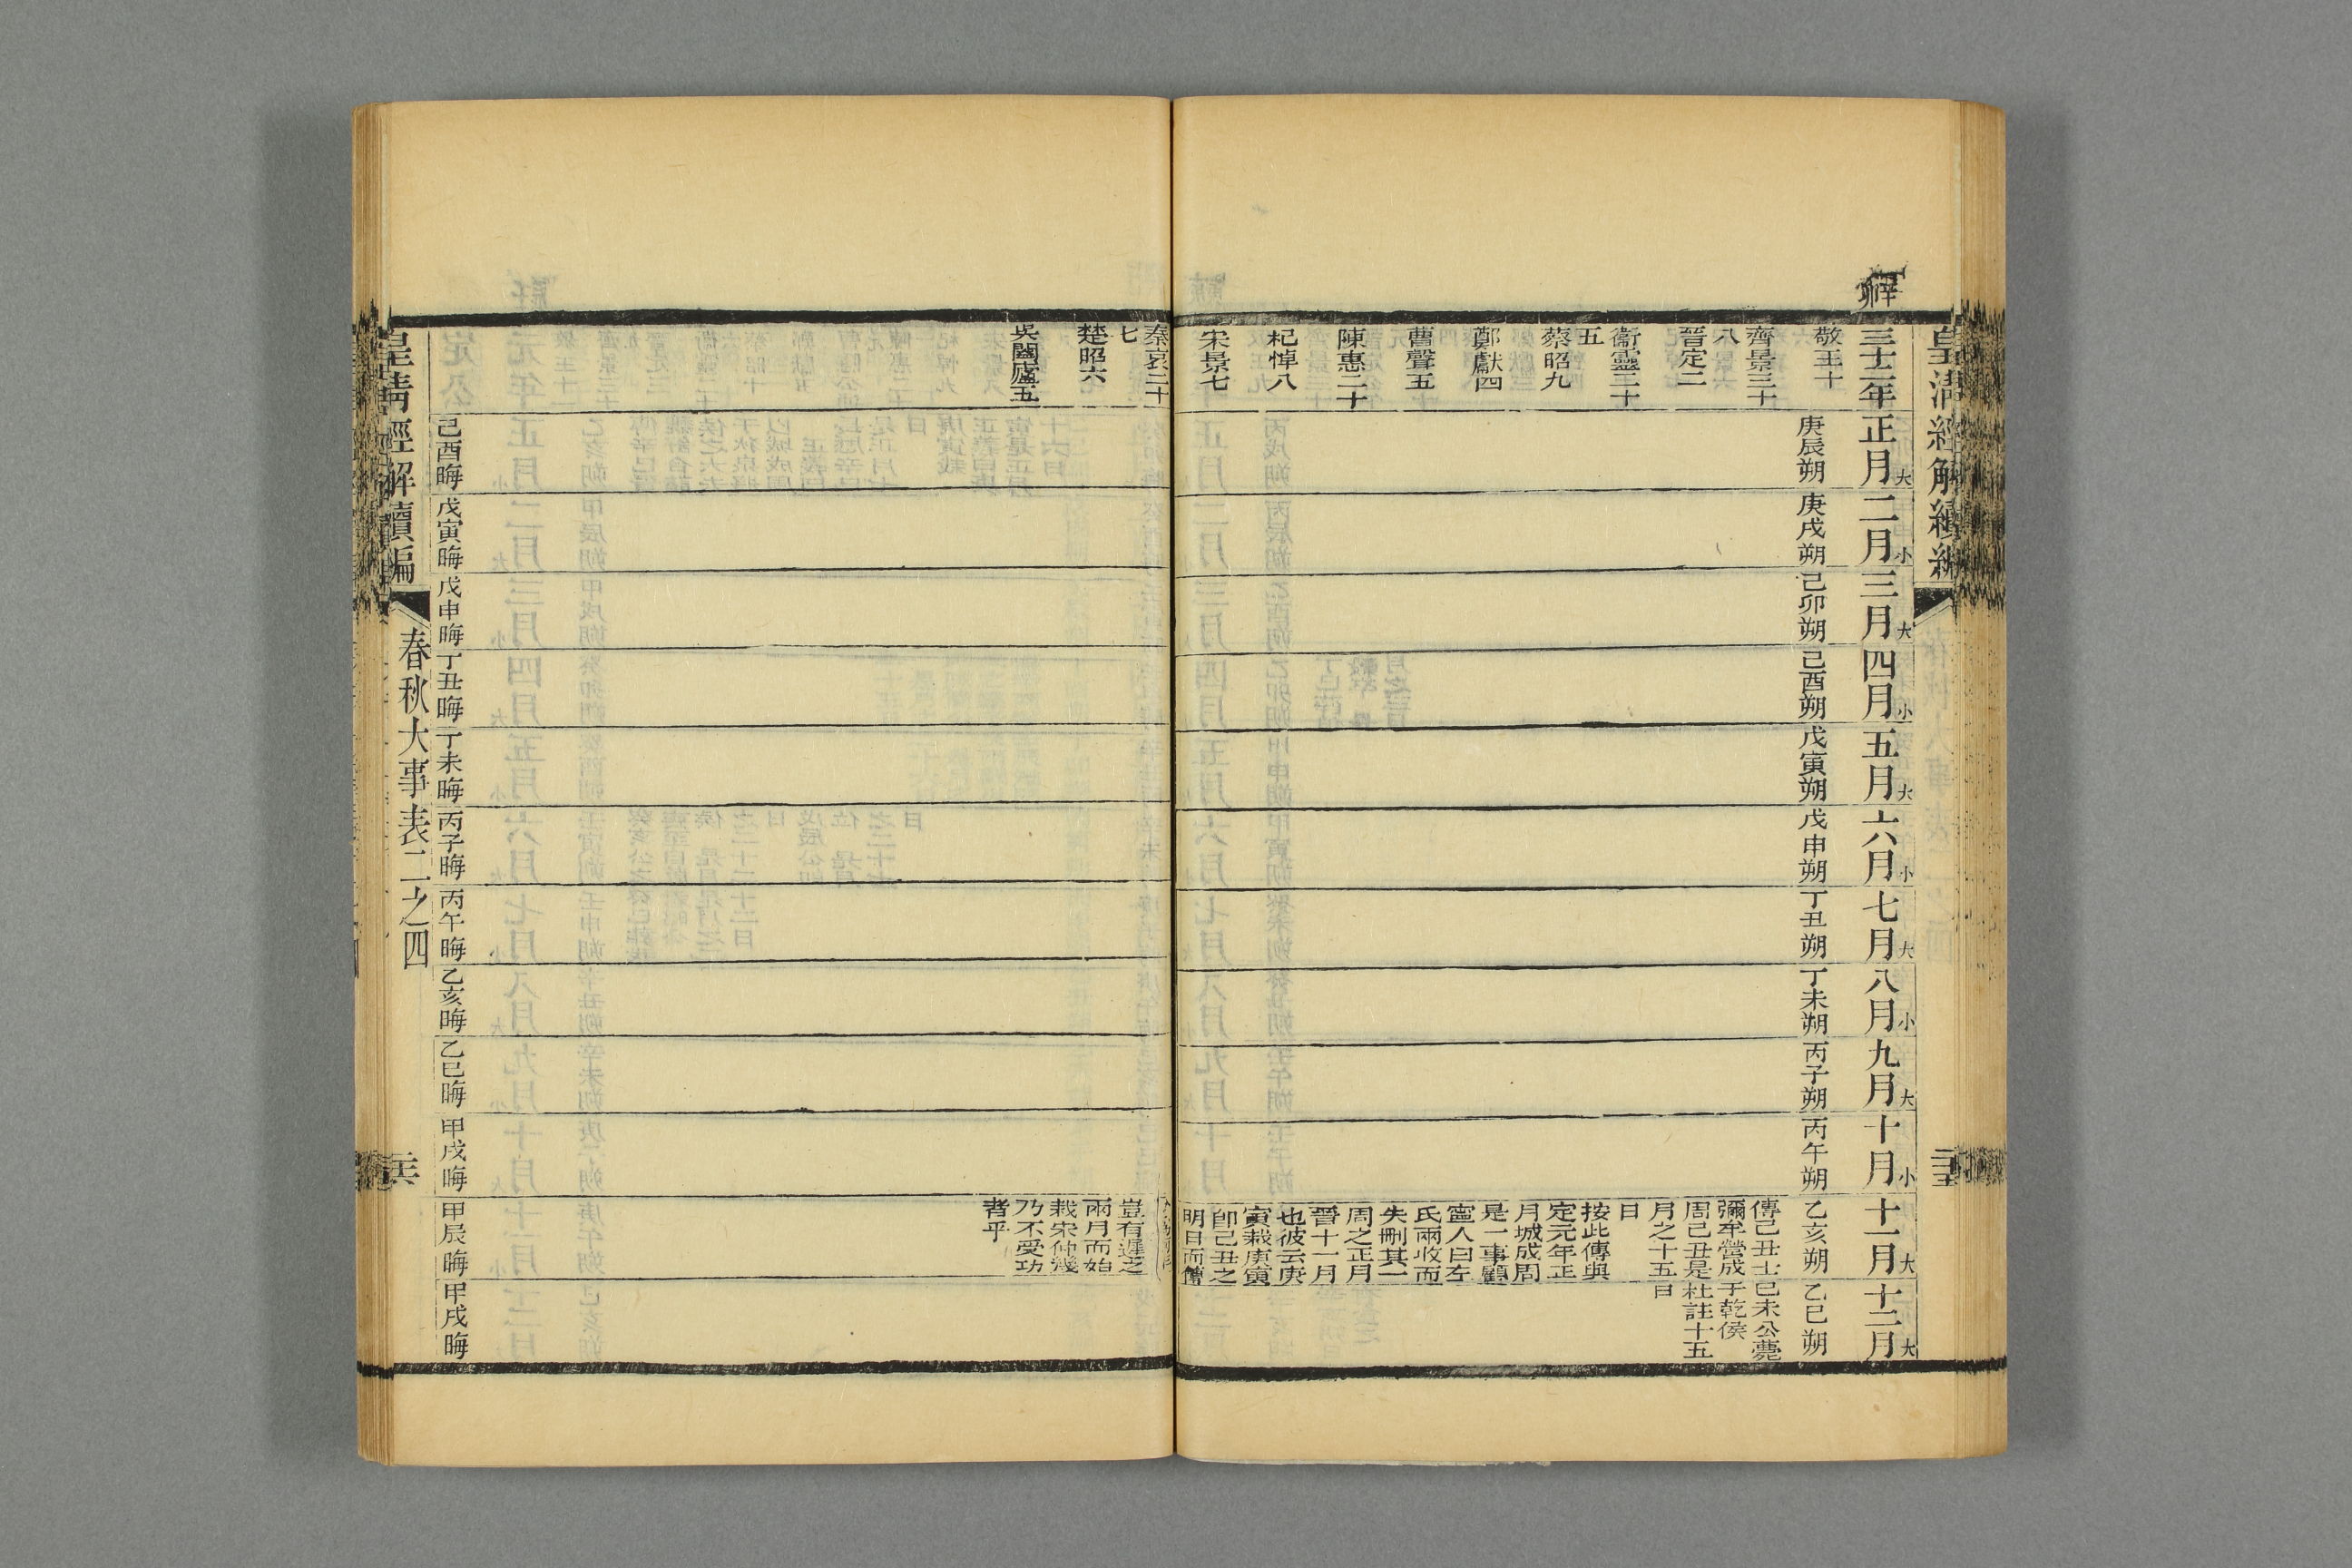 皇清經解續編
辛卯
三十二年
正月大
二月小
三月大
四月小
五月大
六月小
七月大
八月小
九月大
十月小
十一月大
十二月大
敬王十
庚辰朔
庚戌朔
己卯朔
己酉朔
戊寅朔
戊申朔
丁丑朔
丁未朔
丙子朔
丙午朔
乙亥朔
乙巳朔
齊景三十
八
晉定二
衞靈二十
五
蔡昭九
鄭獻四
曹聲五
陳惠二十
杞悼八
宋景七
傳己丑士
彌牟營成
周己丑是
月之十五
日
按此傳與
定元年正
月城成周
是一事顧
寧人曰左
氏兩收而
失刪其一
周之正月
晉十一月
也彼云庚
寅栽庚寅
卽己丑之
明日而傳
己未公薨
于乾侯
杜註十五
日
秦哀二十
七
楚昭六
吳闔廬五
豈有遲之
兩月而始
栽宋仲幾
乃不受功
者乎
己酉晦
戊寅晦
戊申晦
丁丑晦
丁未晦
丙子晦
丙午晦
乙亥晦
乙巳晦
甲戌晦
甲辰晦
甲戌晦
皇清經解續編
春秋大事表二之四